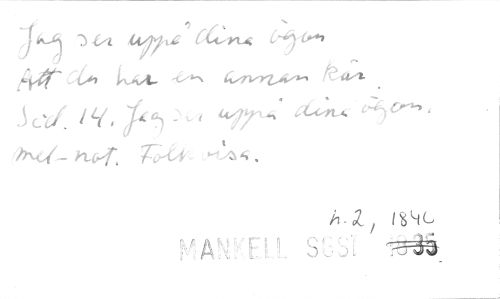 Jag ser uppå dina ögon
Att du har en annan kär.
Sid. 14. Jag ser uppå dina ögon.
mel-not. Folkvisa.
h. 2, 184
MANKELL SGSI 1835